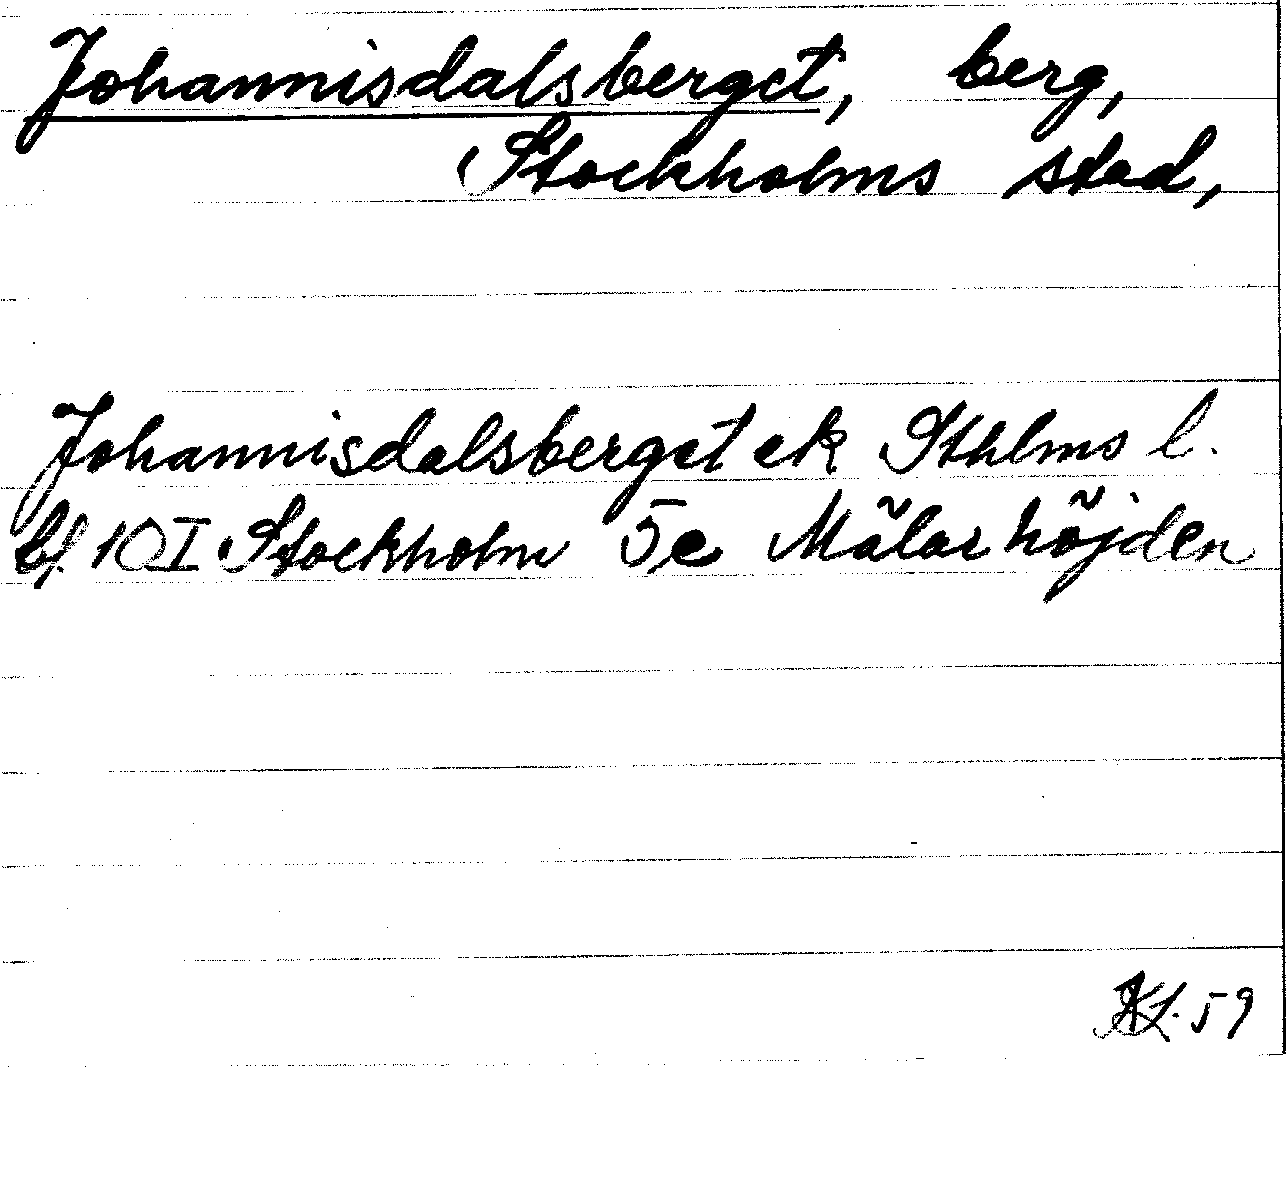 Johannisdalsberget, berg,
Stockholms stad,
Johannisdalsberget ek Sthlms l.
bl. 10 I Stockholm 5e Mälarhöjden
59